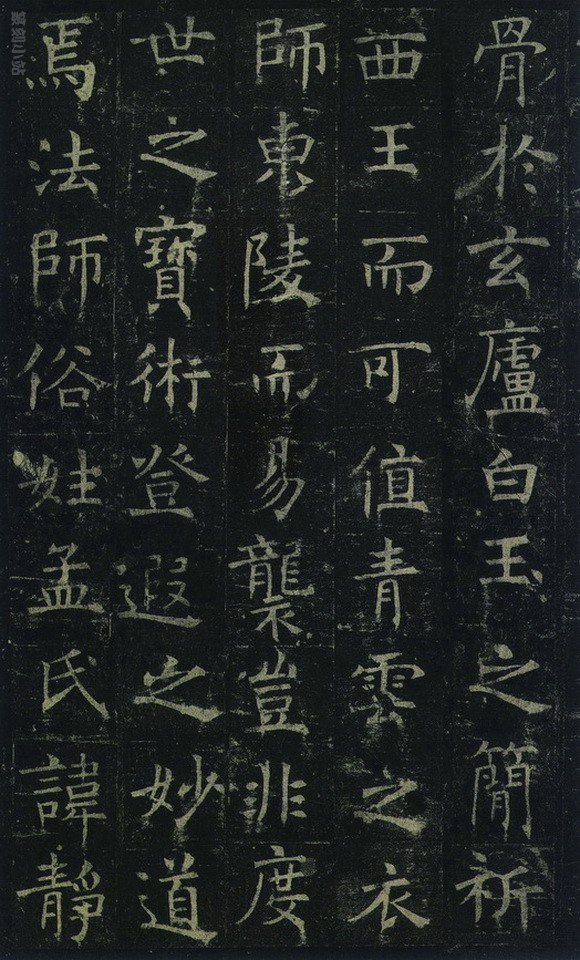 骨於玄廬白玉之簡祈
西王而可值青雲之衣
師東陵而易襲豈非度
世之寶術登遐之妙道
焉法師俗姓孟氏諱靜
篆刻小站